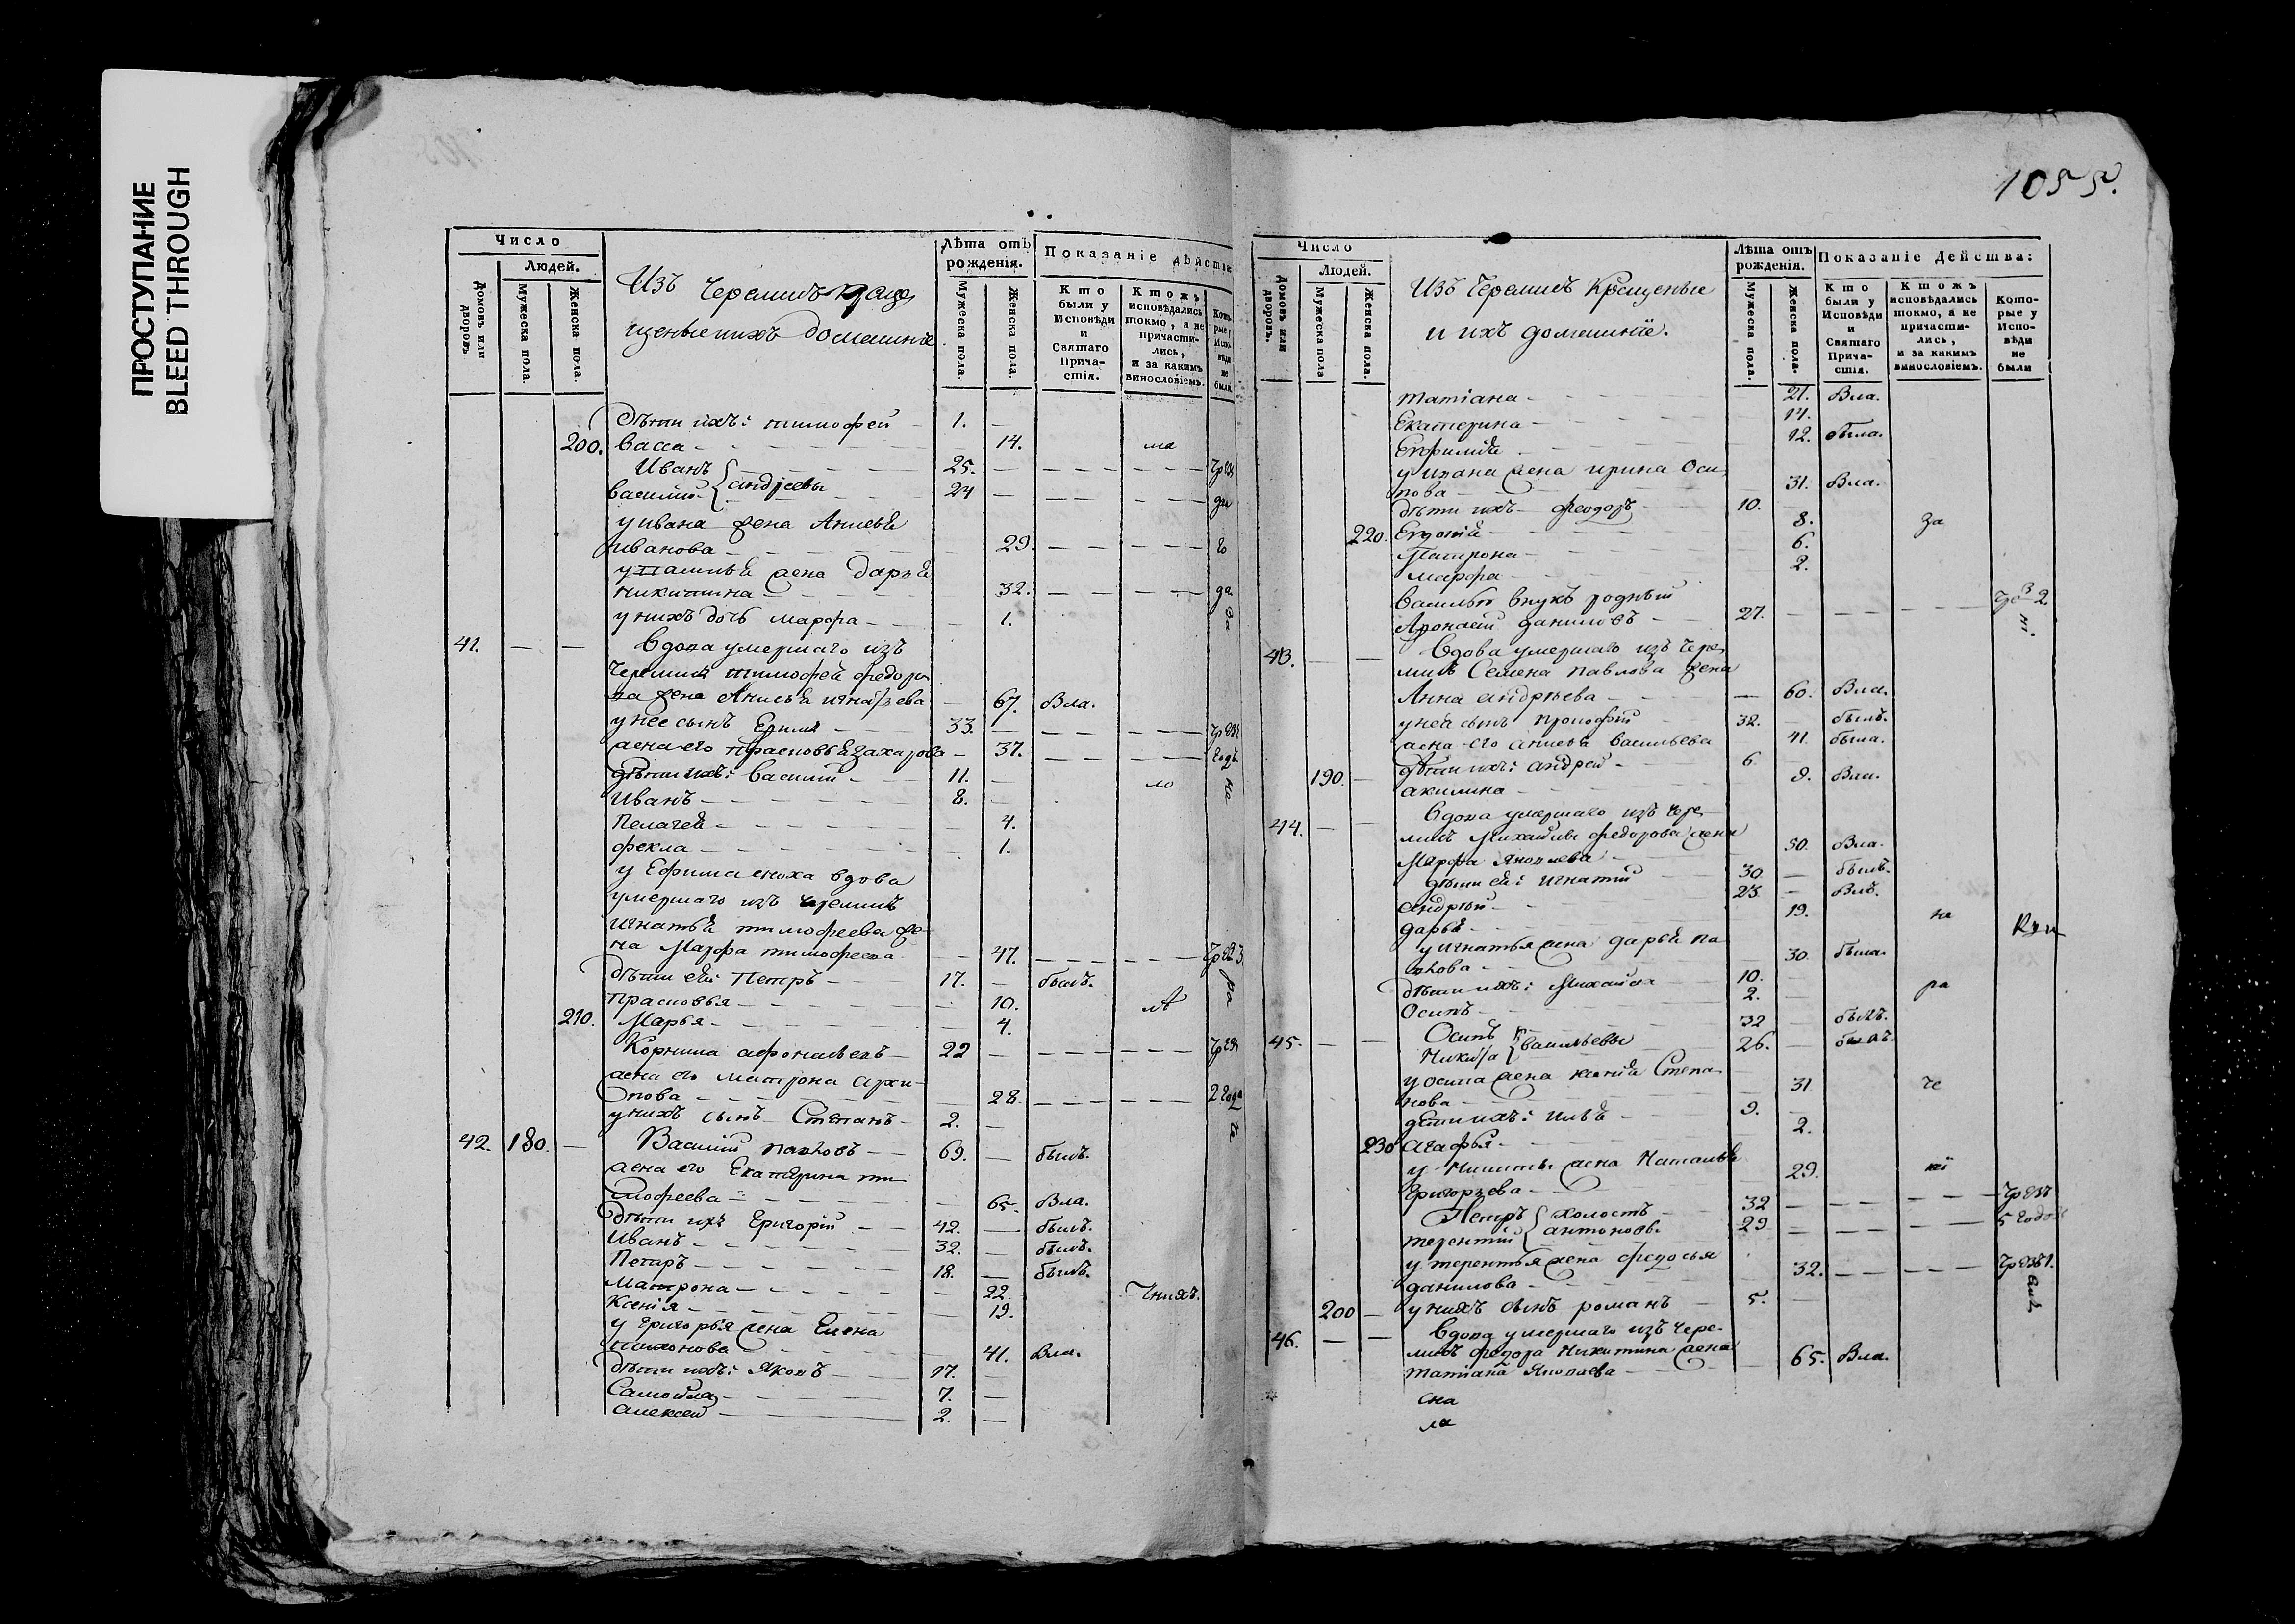 ПРОСТУПАНИЕ
BLEED THROUGH
Число
Людей.
Домовъ или дворовъ
Мужеска пола.
Женска пола.
Изъ Черемисъ кре
щеные и ихъ домашние
Лѣта отъ рожденія.
Мужеска пола.
Женска пола.
Показаніе дѣйства
Кто были у Исповѣди и Святаго Причастія.
Ктожъ исповѣдались токмо, а не причастились, и за какимъ винословіемъ.
Которые у Исповѣди не были
дѣти ихъ: тимофей 1.
200. васса 14.
Иванъ 25.
василий андреевы 24
у ивана жена Анисья
иванова 29
жена дарья
никитина 32.
у нихъ дочь марфа 1.
41. вдова умершаго изъ
Черемисъ тимофея федоро
ва жена Анисья игнатьева 67. Бла.
у нее сынъ Ефимъ 33.
жена его прасковья захарова 37.
дѣти ихъ: василий 11.
Иванъ 8.
Пелагея 4.
фекла 1.
у Ефима сноха вдова
умершаго изъ черемисъ
игнатья тимофеева же
на Марфа тимофеева 47.
дѣти ей Петръ 17. былъ.
прасковья 10.
210. Марья 4.
Корнила афонасьевъ 22
жена его матрона архи
пова 28
у нихъ сынъ Степанъ 2.
42. 180. Василий павловъ 69. былъ.
жена его Екатерина ти
мофеева 65. Бла.
дѣти ихъ Григорій 42. былъ.
Иванъ 32. былъ.
Петръ 18. былъ.
Матрона 22.
Ксенія 19.
у Григорья жена Елена
41. Бла.
дѣти ихъ: Яковъ 17.
Самойла 7.
алексей 2.
1055.
Число
Людей.
Домовъ или дворовъ.
Мужеска пола
Женска пола.
Изъ Черемисъ Крещеные
и ихъ домашніе.
Лѣта отъ рожденія.
Мужеска пола.
Женска пола.
Показаніе Действа:
Кто были у Исповѣди и Святаго Причастія.
Ктожъ исповѣдались токмо, а не причастились, и за какимъ винословіемъ.
Которые у Исповѣди не были
татіана 21. Бла.
Екатерина 14.
12. была.
у ивана жена ирина Оси
пова 31. Бла.
дѣти ихъ феодоръ 10.
220. 8. за
Матрона 6.
марфа 2.
василья внукъ родный
Афонасей даниловъ 27.
43. вдова умершаго изъ чере
мисъ Семена павлова жена
Анна андреева 60. Бла.
у ней сынъ прокофий 32. былъ.
жена его анисья васильева 41. была.
190. дѣти ихъ: андрей 6
акилина 9. Бла.
44. вдова умершаго изъ чере
мисъ Михайлы федорова жена
Марфа Яковлева 50. Бла.
дѣти ей: игнатий 30. былъ.
андрей 23
дарья 19. не
у игнатья жена дарья па
влова 30. была.
дѣти ихъ: Михайла 10.
Осипъ 2. ра
45. Осипъ 32 былъ.
Никита васильевы 26. былъ.
у осипа жена ксенія Степа
нова 31 че
дѣти ихъ: илья 9.
230 агафья 2.
у Никиты жена Наталья
Григорьева 29. ні
Петръ холостъ 32
терентий антоновы 29 5 годов
у терентья жена федосья
данилова 32.
200 у нихъ сынъ романъ 5.
46. вдова умершаго изъ чере
мисъ федора Никитина жена
татіана Яковлева 65. Бла.